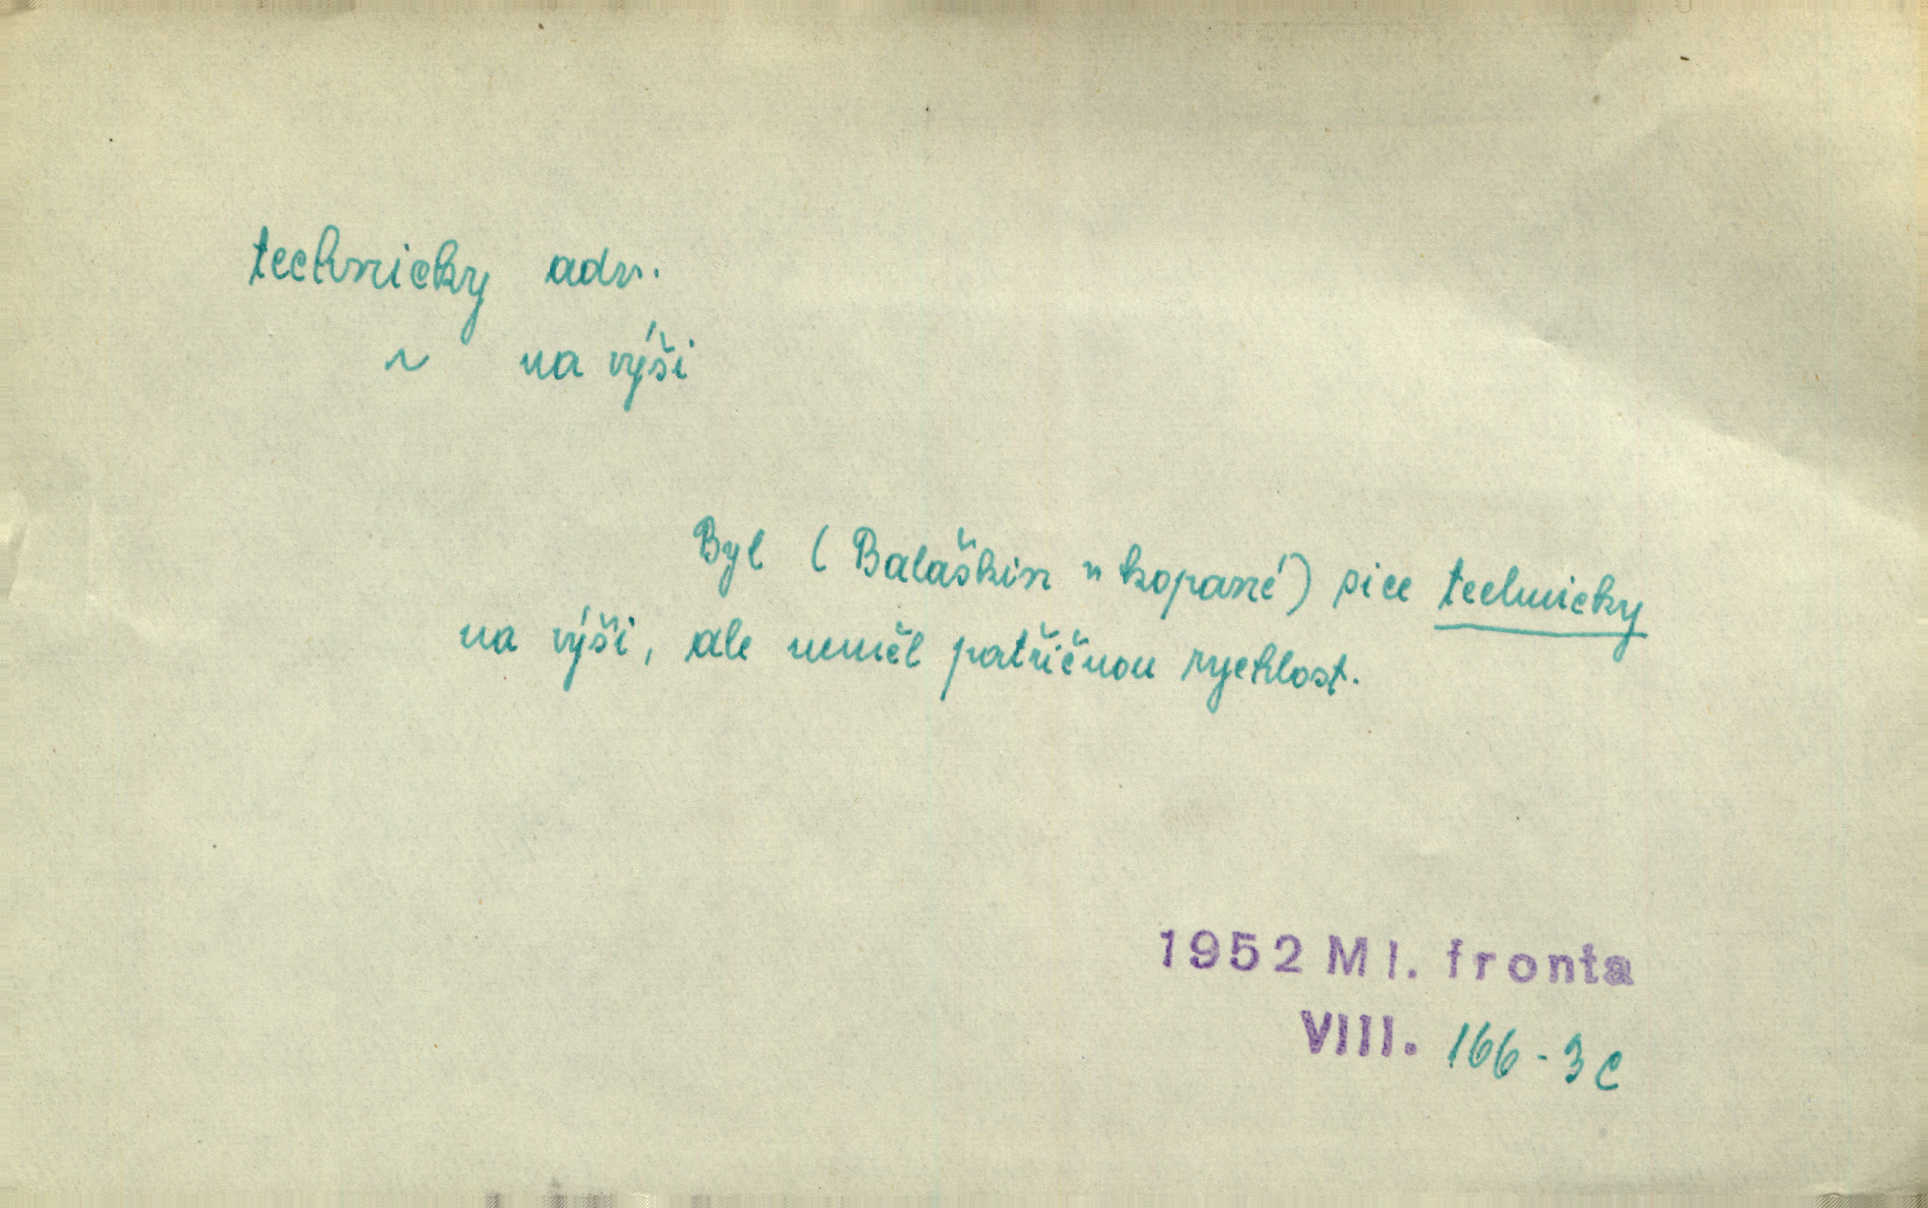 technicky adv.
~ na výši
Byl (Balaškin v kopané) sice technicky
na výši, ale neměl patřičnou rychlost.
1952 Ml. fronta
VIII. 166-3c